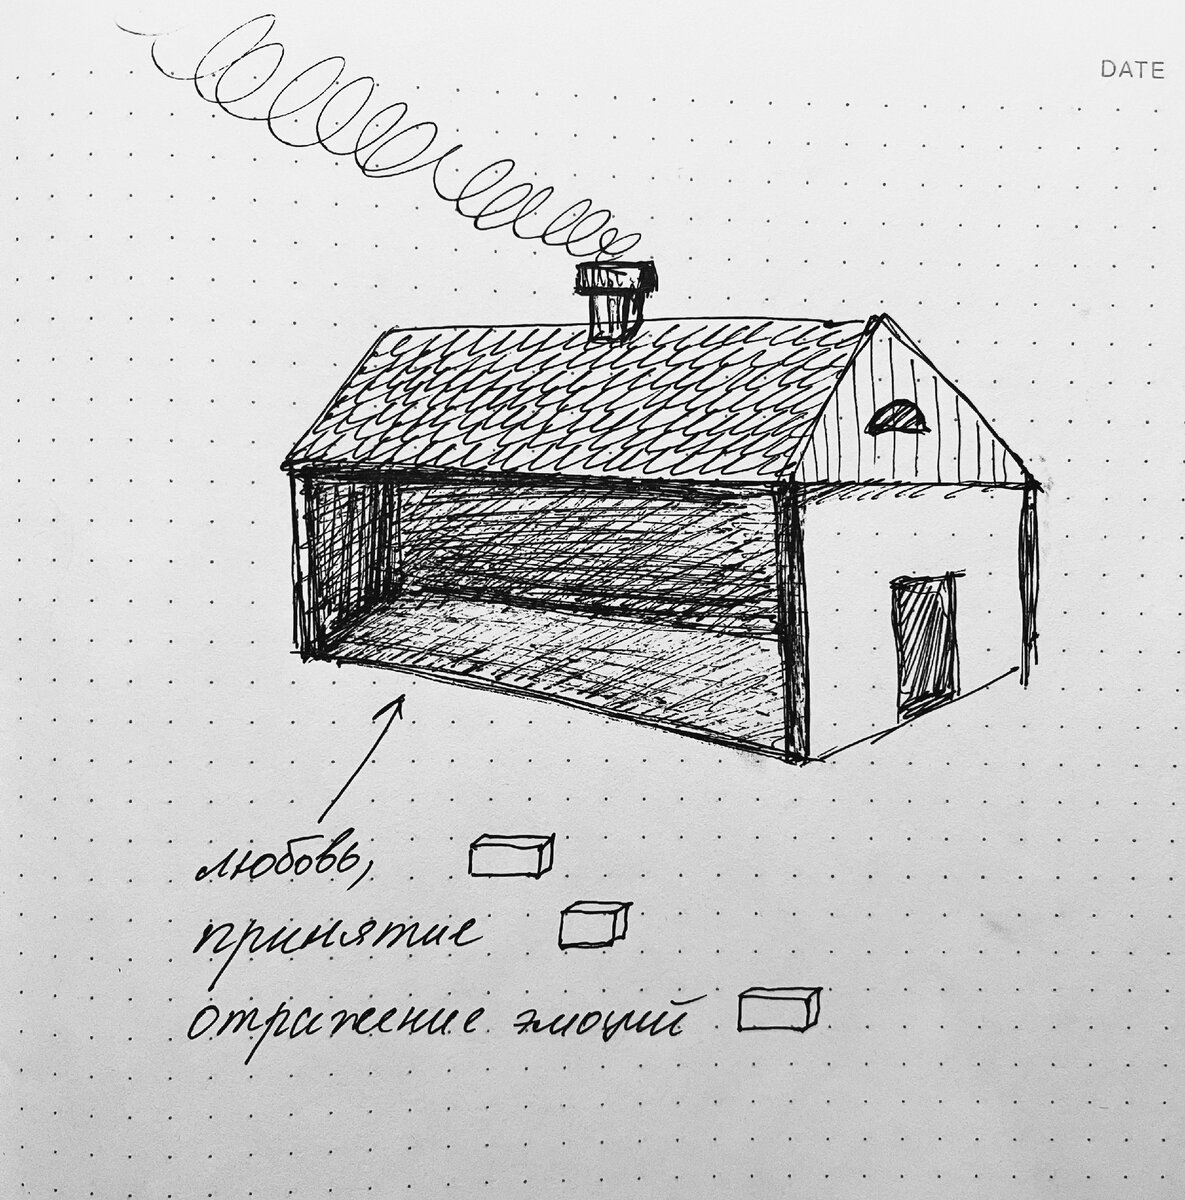 DATE
любовь,
принятие
отражение эмоций